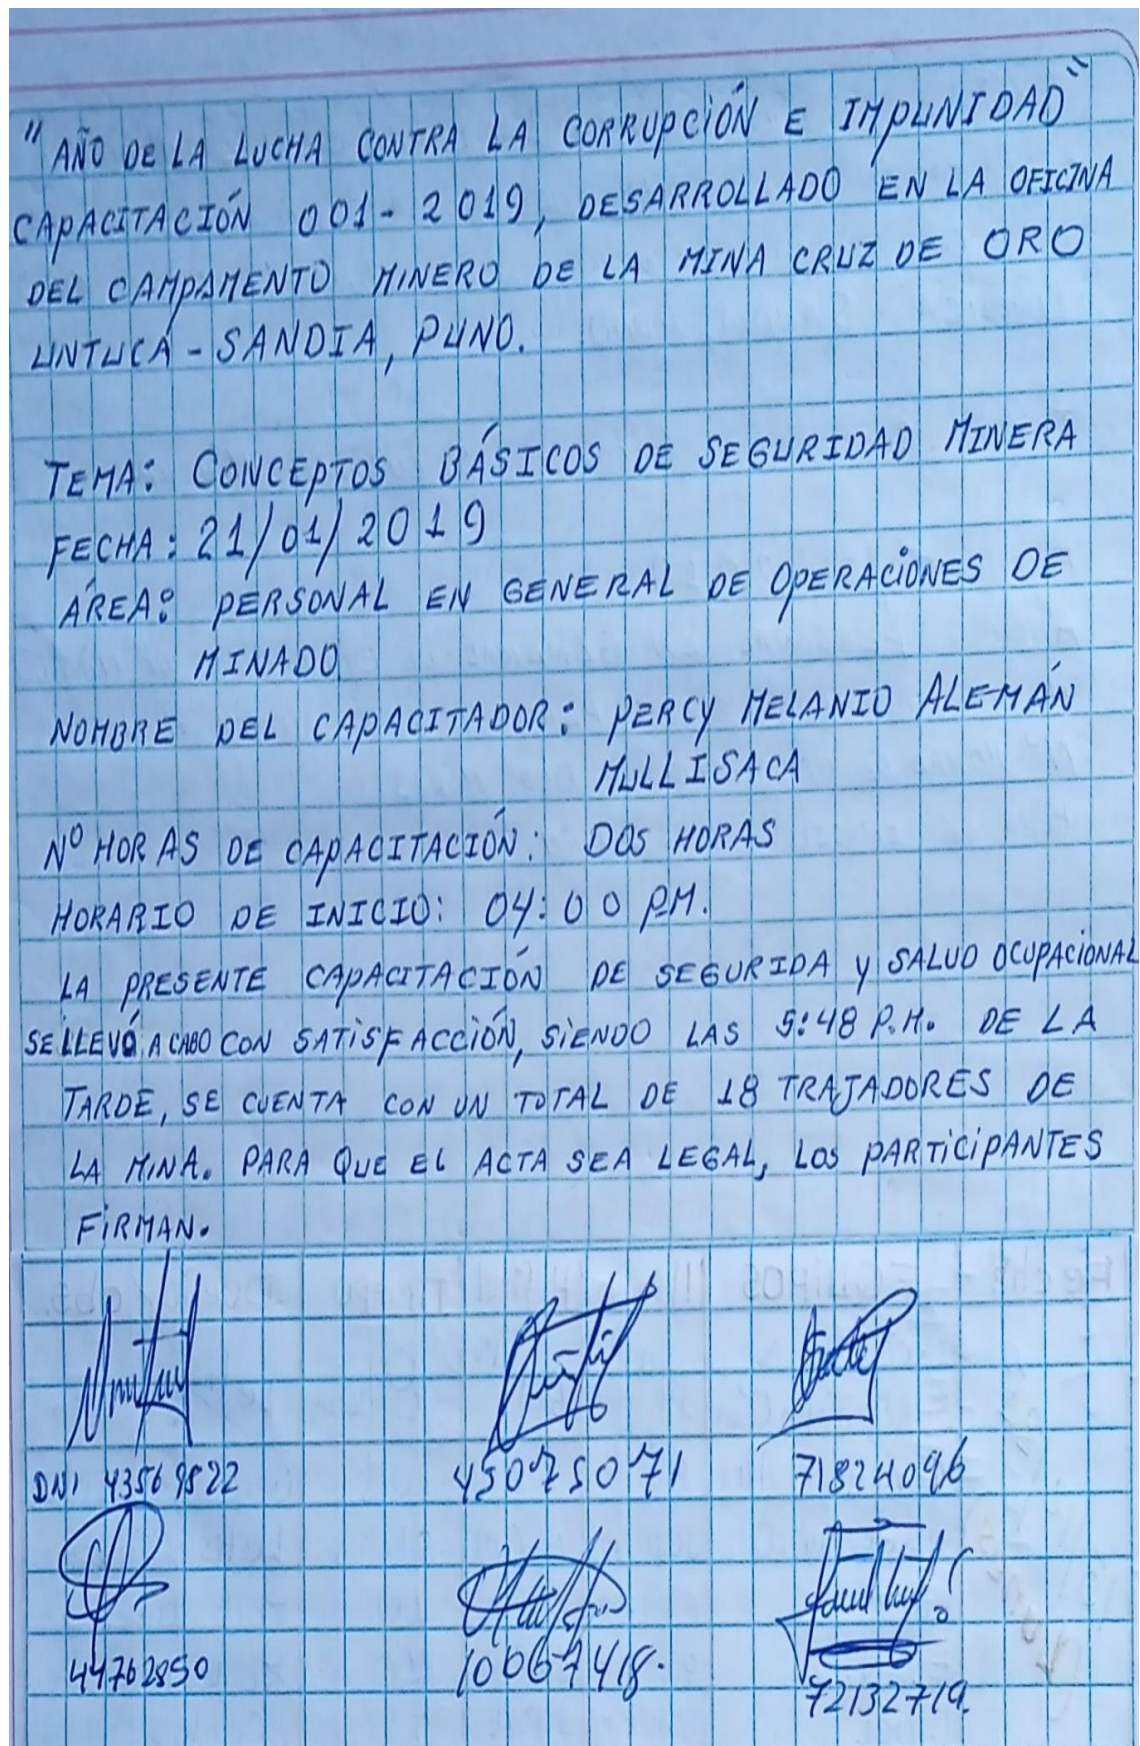 "AÑO DE LA LUCHA CONTRA LA CORRUPCIÓN E IMPUNIDAD"
CAPACITACIÓN 001-2019, DESARROLLADO EN LA OFICINA
DEL CAMPAMENTO MINERO DE LA MINA CRUZ DE ORO
UNTUCA - SANDIA, PUNO.
TEMA: CONCEPTOS BÁSICOS DE SEGURIDAD MINERA
FECHA: 21/01/2019
ÁREA: PERSONAL EN GENERAL DE OPERACIONES DE
MINADO
NOMBRE DEL CAPACITADOR: PERCY MELANIO ALEMÁN
MULLISACA
Nº HORAS DE CAPACITACIÓN: DOS HORAS
HORARIO DE INICIO: 04:00 P.M.
LA PRESENTE CAPACITACIÓN DE SEGURIDA Y SALUD OCUPACIONAL
SE LLEVÓ A CABO CON SATISFACCIÓN, SIENDO LAS 5:48 P.M. DE LA
TARDE, SE CUENTA CON UN TOTAL DE 18 TRAJADORES DE
LA MINA. PARA QUE EL ACTA SEA LEGAL, LOS PARTICIPANTES
FIRMAN.
DNI 43569822 45075071 71824096
44762850 10067418.
72132719.